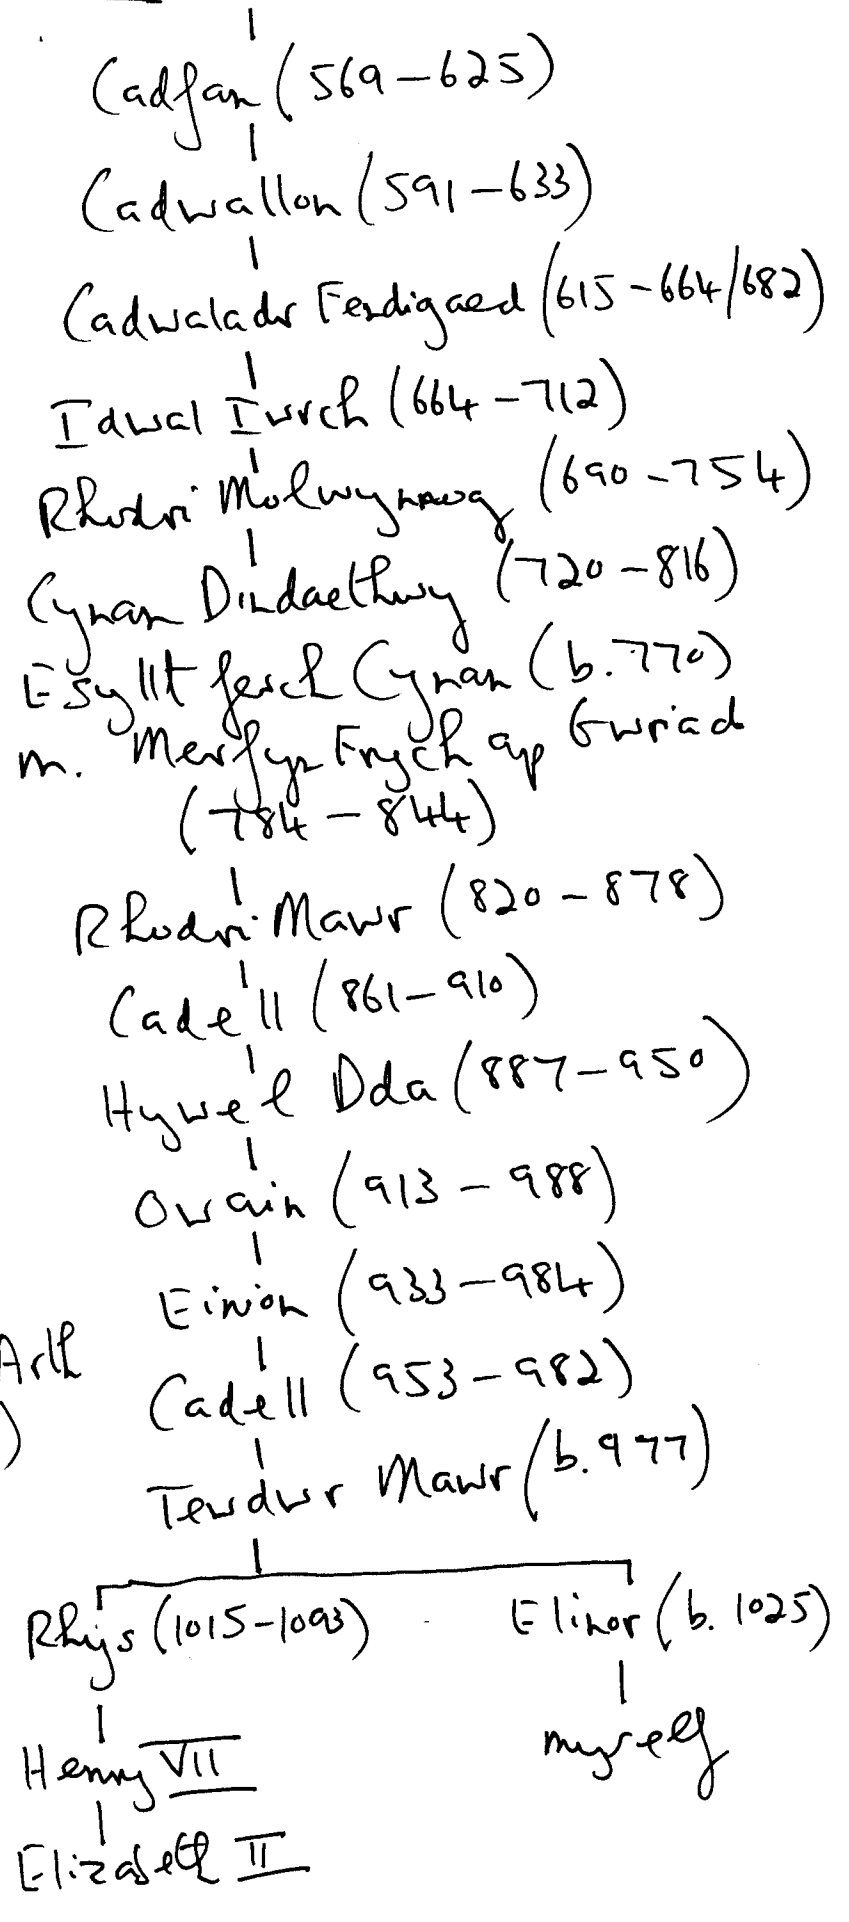 Cadfan (569-625)
Cadwallon (591-633)
Cadwaladr Fendigaed (615-664/682)
Idwal Iwrch (664-712)
Rhodri Molwynawg (690-754)
Cynan Dindaethwy (720-816)
Esyllt ferch Cynan (b.770)
m. Merfyn Frych ap Gwriad
(784-844)
Rhodri Mawr (820-878)
Cadell (861-910)
Hywel Dda (887-950)
Owain (913-988)
Einion (933-984)
Arth
Cadell (953-982)
)
Tewdwr Mawr (b.977)
Rhys (1015-1093) Elinor (b. 1025)
Henry VII myself
Elizabeth II